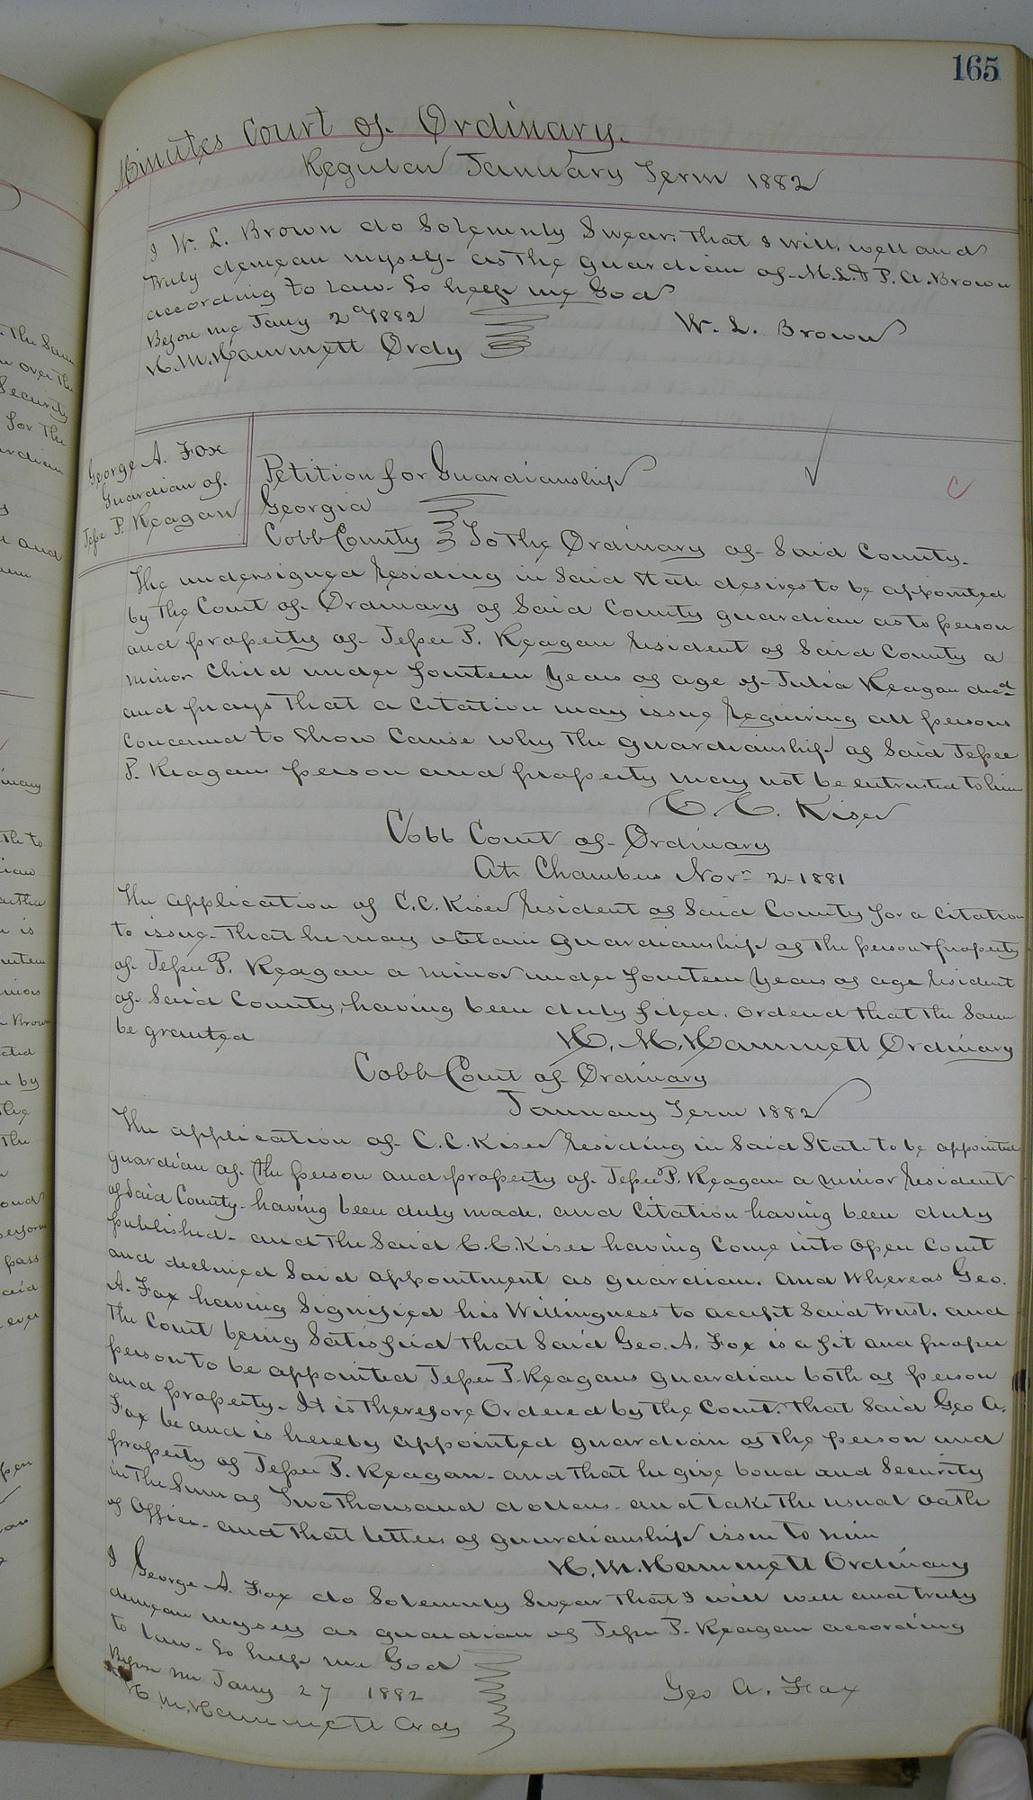 165
Minutes Court of Ordinary.
Regular January Term 1882
I W. L. Brown do Solemnly Swear, that I will, well and
Truly demean myself as the guardian of M.L.& P. A. Brown
according to law. So help me God
Before me Jany 2d 1882
W. L. Brown
H. M. Hammett Ordy
George A. Fox
Guardian of
Jesse P. Reagan
Petition for Guardianship
Georgia
Cobb County To the Ordinary of Said County.
The undersigned residing in Said State desires to be appointed
by the Court of Ordinary of Said County guardian as to person
and property of Jesse P. Reagan resident of Said County a
minor Child under fourteen years of age of Julia Reagan decd
and prays that a citation may issue requiring all persons
Concerned to Show Cause why the guardianship of Said Jesse
P. Reagans person and property may not be entrusted to him
C. C. Kiser
Cobb Court of Ordinary
At Chambers Novr 2 1881
The application of C.C. Kiser resident of Said County for a citation
to issue that he may obtain guardianship of the person & property
of Jesse P. Reagan a minor under fourteen years of age resident
of Said County, having been duly filed. ordered that the Same
be granted
H. M. Hammett Ordinary
Cobb Court of Ordinary
January Term 1882
The application of C.C. Kiser residing in Said State to be appointed
guardian of the person and property of Jesse P. Reagan a minor resident
of Said County having been duly made, and Citation having been duly
published and the Said C.C. Kiser having Come into open Court
and declined Said appointment as guardian. And Whereas Geo.
A. Fox having Signified his Willingness to accept Said trust. and
The Court being Satisfied that Said Geo. A. Fox is a fit and proper
person to be appointed Jesse P. Reagans guardian both of person
and property. It is therefore Ordered by the Court. that Said Geo A.
Fox be and is hereby appointed guardian of the person and
property of Jesse P. Reagan and that he give bond and Security
in the Sum of Two thousand dollars and take the usual oath
of Office and that letters of guardianship issue to him
H. M. Hammett Ordinary
I George A. Fox do Solemnly Swear that I will well and truly
demean myself as guardian of Jesse P. Reagan according
to law. So help me God
Before me Jany 27 1882
Geo A. Fox
H. M. Hammett Ordy